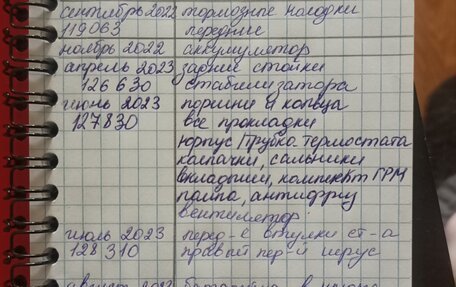 сентябрь 2022 тормозные колодки
119063 передние
ноябрь 2022 аккумулятор
апрель 2023 задние стойки
126 630 стабилизатора
июнь 2023 поршни и кольца
127830 все прокладки
корпус/трубка термостата
колпачки, сальники
вкладыши, комплект ГРМ
помпа, антифриз
вентилятор
июль 2023 перед-е втулки ст-а
128 310 правый пер-й
август